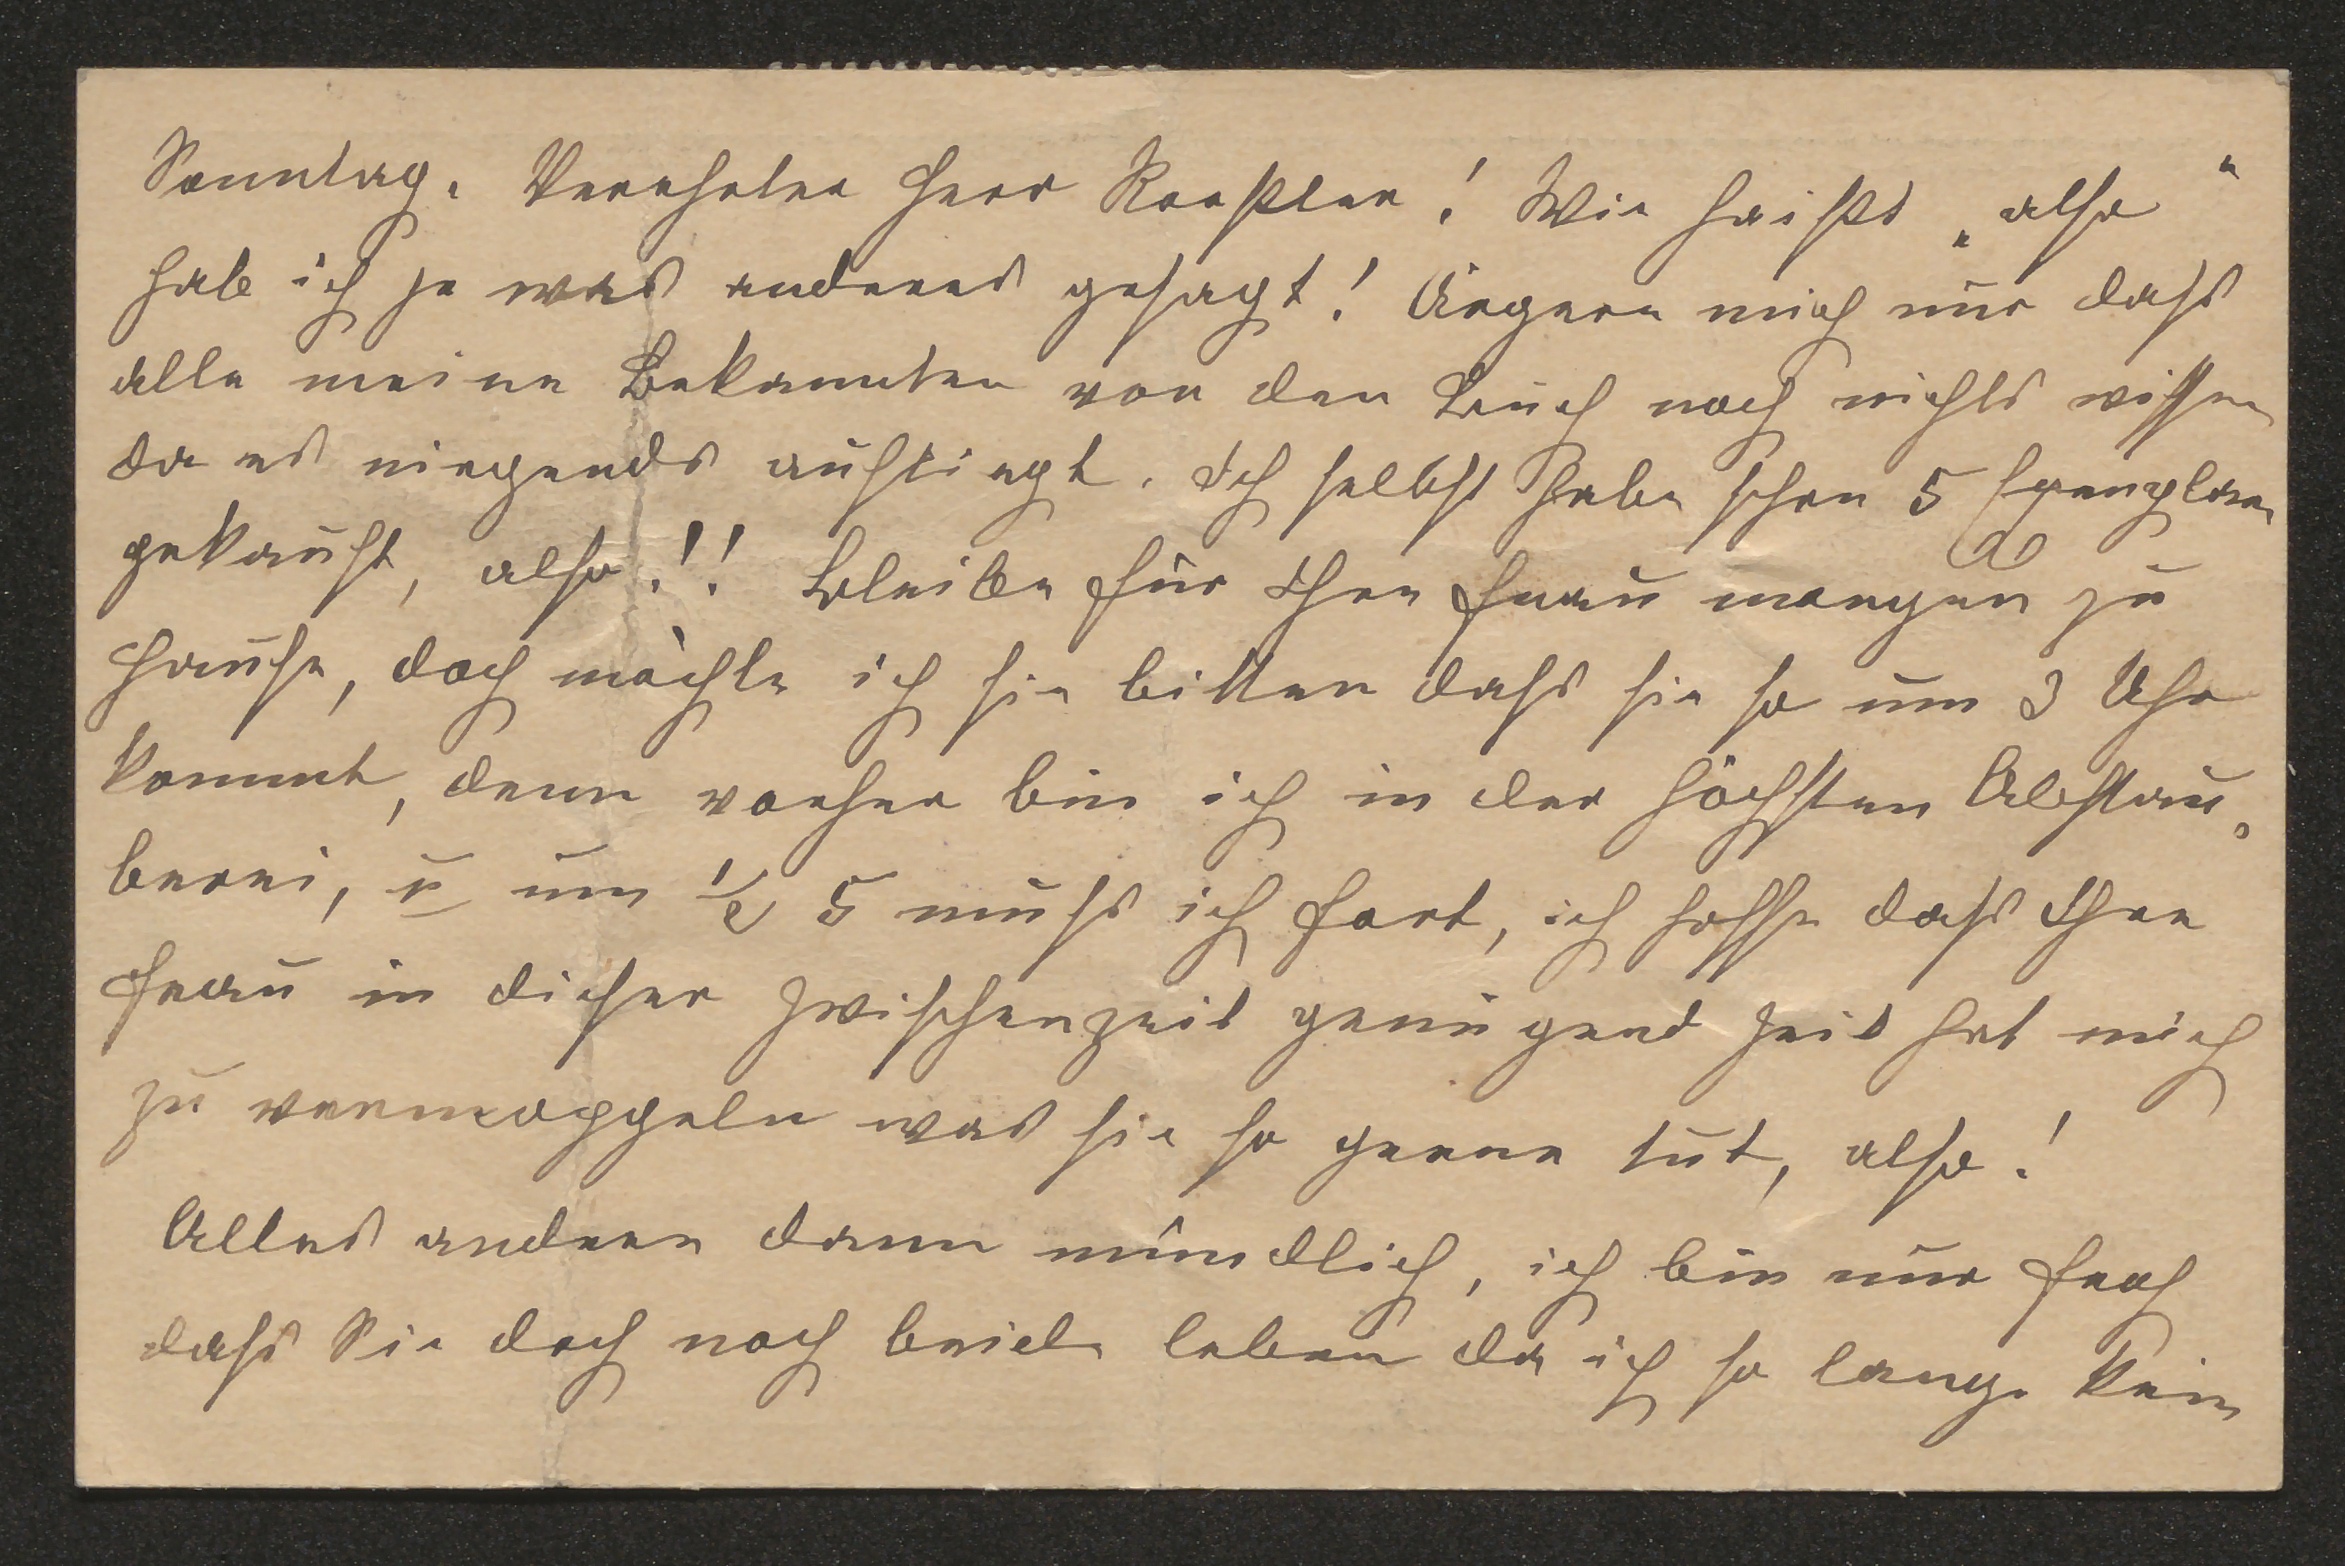 Sonntag. Verehrter Herr Roessler! Wie heisst „also“
hab ich je was anderes gesagt! Ärgere mich nur dass
alle meine Bekannten von den Buch noch nichts wissen
da es niergends aufliegt. Ich selbst habe schon 5 Exemplare
gekauft, also!! Bleibe für Ihre Frau morgen zu
Hause, doch möchte ich sie bitten dass sie so um 3 Uhr
kommt, denn vorher bin ich in der höchsten Abstau„
berei, u um 1/2 5 muss ich fort, ich hoffe dass Ihre
Frau in dieser Zwischenzeit genügend Zeit hat mich
zu vermoppeln was sie so gerne tut, also!
Alles andere dann mündlich, ich bin nur froh
dass Sie doch noch beide leben da ich so lange kein